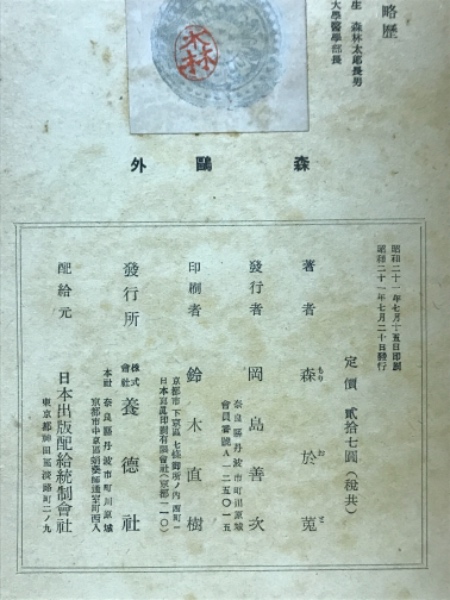 略歷
生 森林太郎長男
大學醫學部長
森林
森鷗外
昭和二十一年七月十五日印刷
昭和二十一年七月二十日發行
定價 貳拾七圓(稅共)
著者 森於菟
もり お と
發行者 岡島善次
奈良縣丹波市町川原城
會員番號A一二五〇一五
印刷者 鈴木直樹
京都市下京區七條御所ノ内西町一
日本寫眞印刷有限會社(京都一一〇)
發行所 株式會社 養德社
本社 奈良縣丹波市町川原城
京都市中京區
配給元 日本出版配給統制會社
東京都神田區淡路町二ノ九